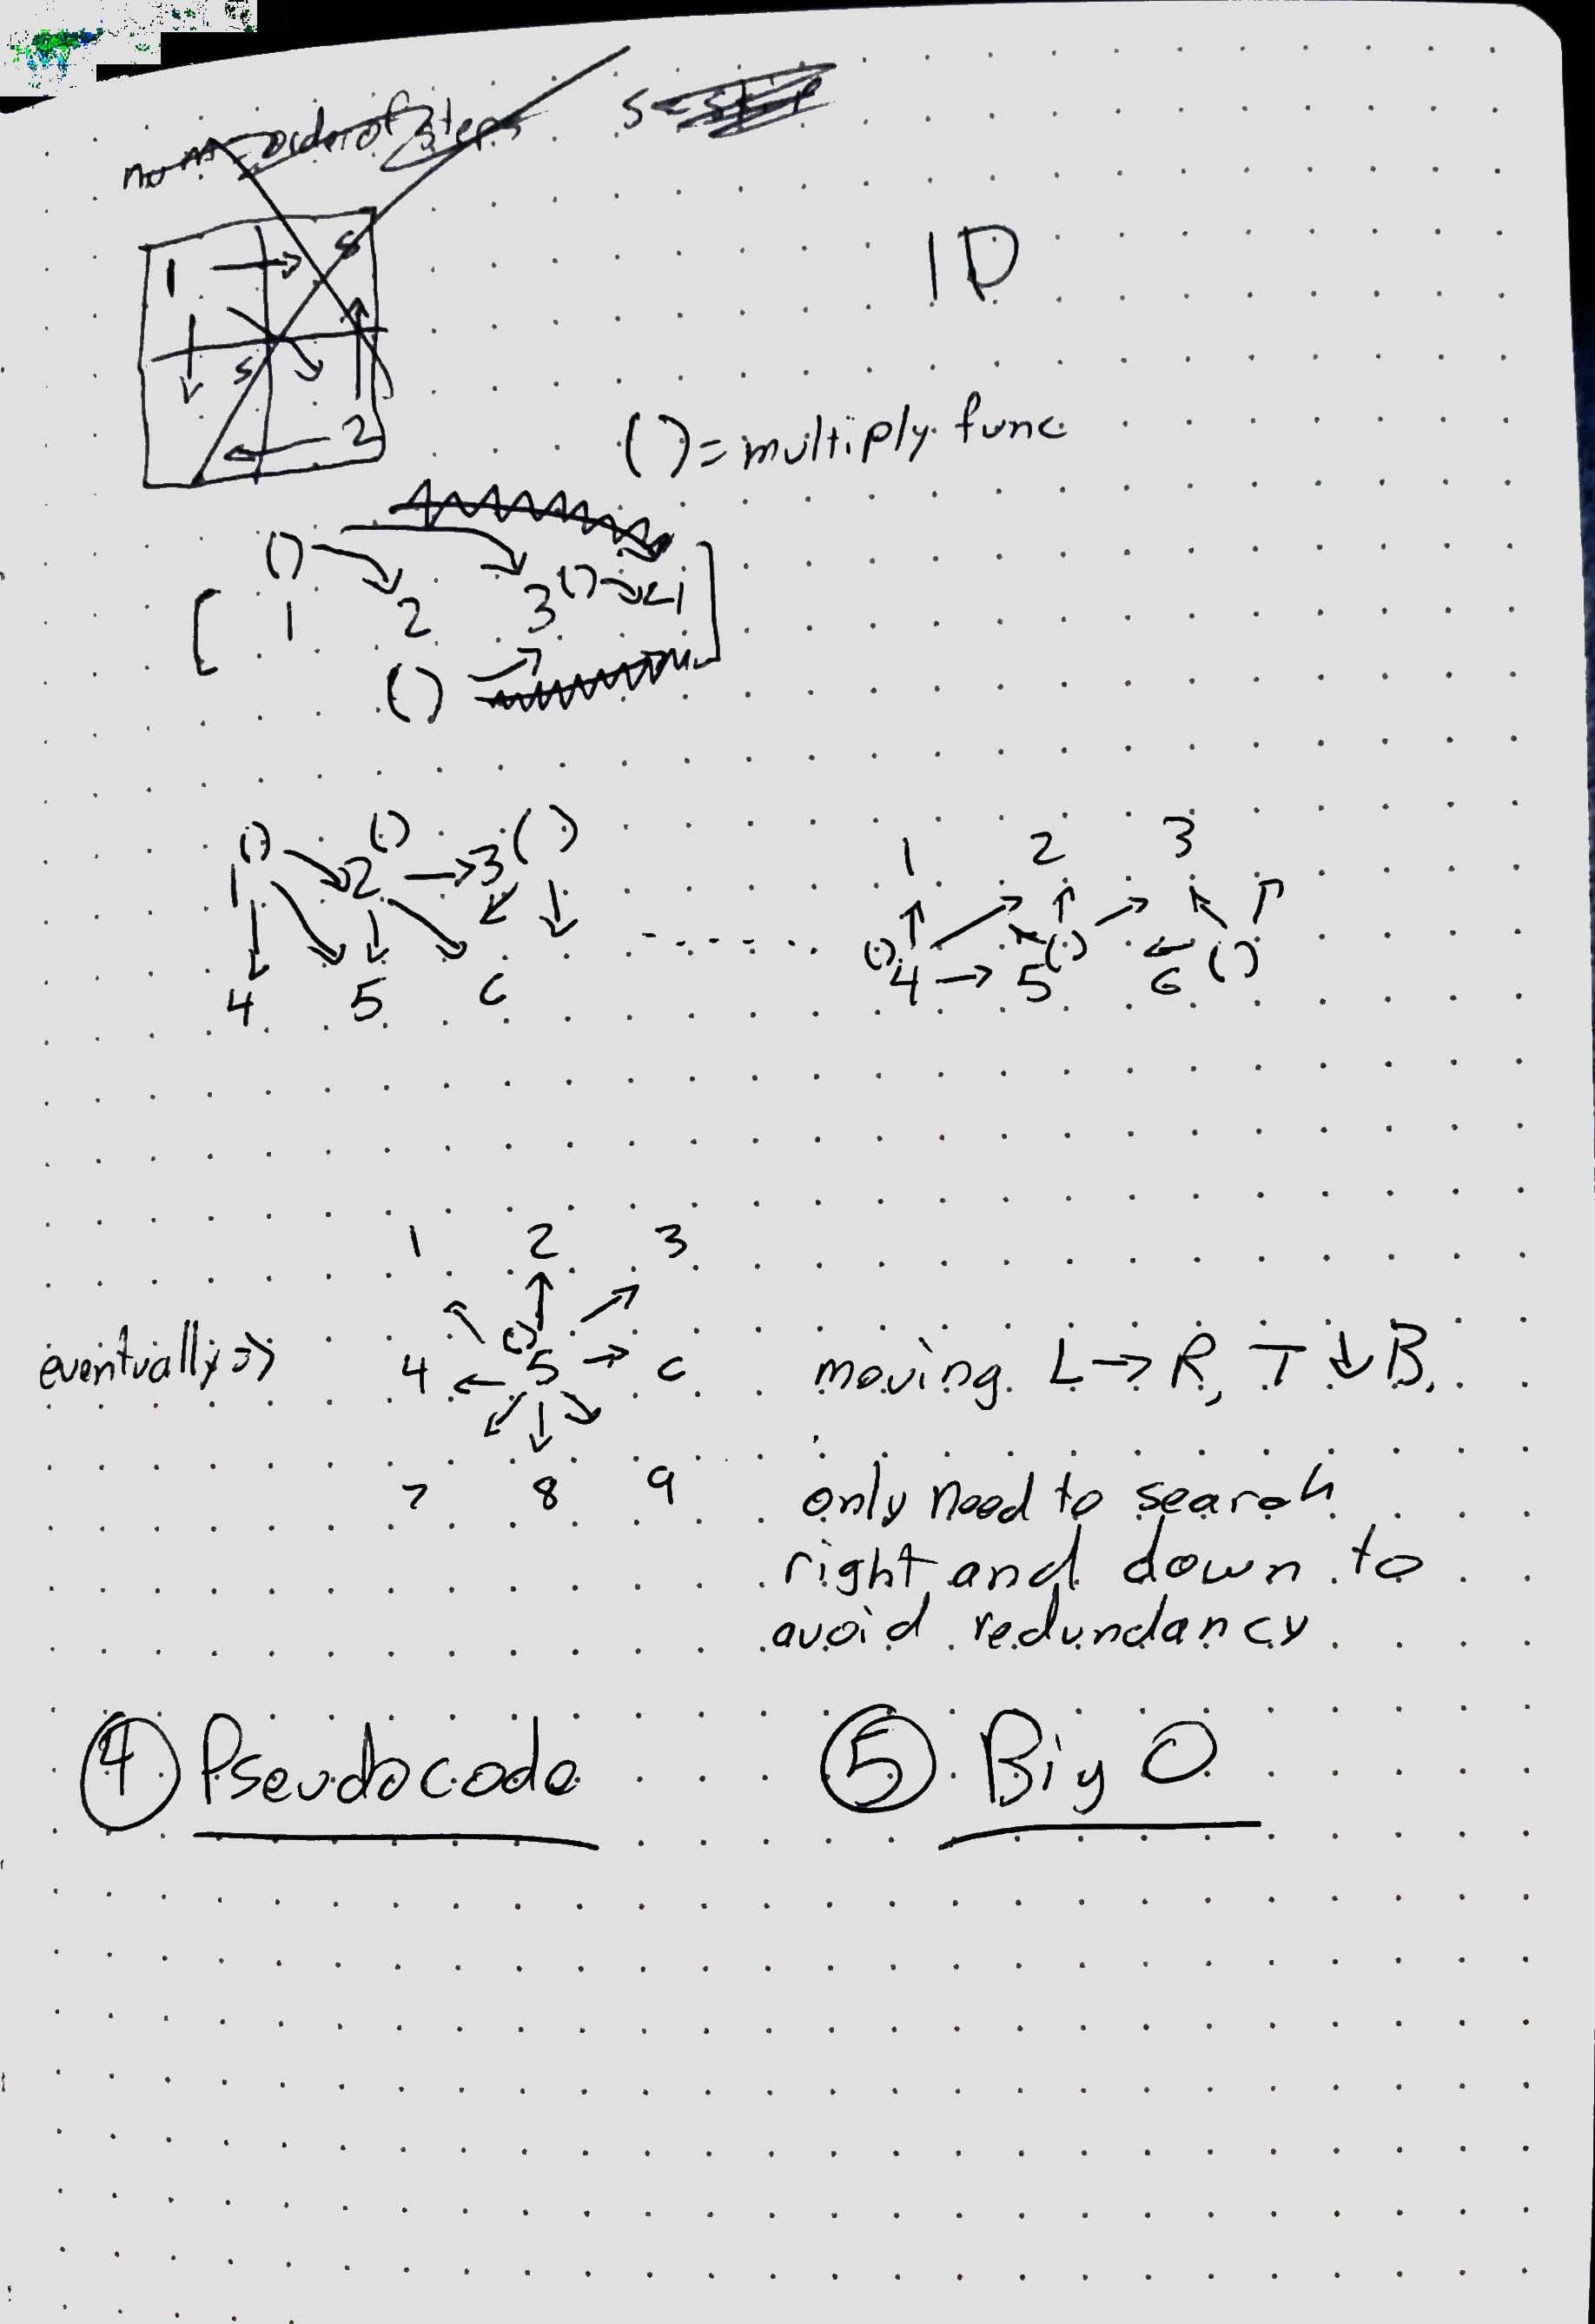 num = order of steps
S =
1 S
S 2
1D
( ) = multiply func
( )
[ 1 2 3 ( ) 4 ]
( )
( ) ( ) ( )
1 2 3
4 5 6
1 2 3
( ) ( ) ( )
4 5 6
1 2 3
eventually => 4 ( ) 5 6
7 8 9
moving L → R, T ↓ B,
only need to search
right and down to
avoid redundancy
④ Pseudocode
⑤ Big O